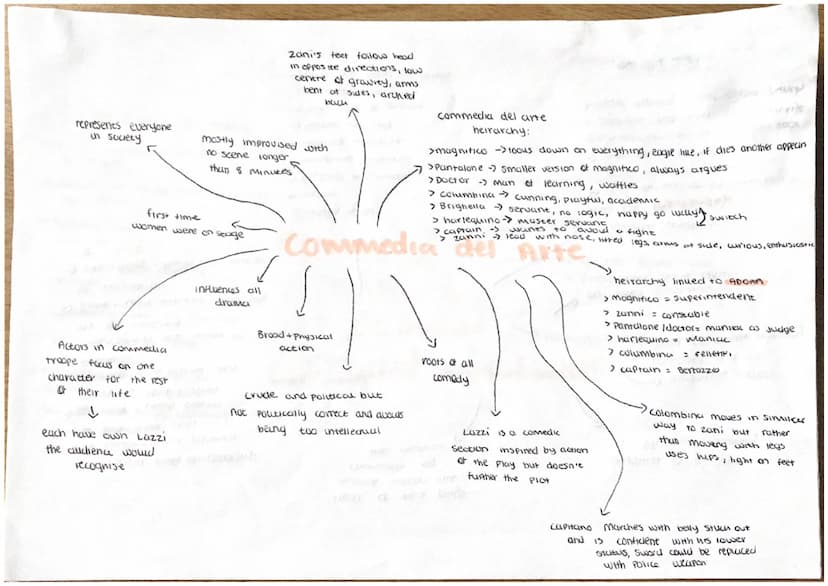 Zani's feet follow head
in opposite directions, low
centre of gravity, arms
bent at sides, arched
back
commedia del arte
heirarchy:
>magnifico → looks down on everything, eagle like, if dies another appears
>Pantalone → smaller version of magnifico, always argues
>Doctor → man of learning, waffles
>columbina → cunning, playful, academic
>Brighella → servant, no logic, happy go lucky
>harlequino → master servant
switch
>captain → wants to avoid a fight
>zanni → lead with nose, lifted legs arms at side, curious, enthusiastic
represents everyone
in society
mostly improvised with
no scene longer
than 8 minutes
first time
women were on stage
Commedia del Arte
influences all
drama
Broad + physical
action
Actors in commedia
troope focus on one
character for the rest
of their life
↓
each have own Lazzi
the audience would
recognise
crude and political but
not politically correct and avoids
being too intellectual
roots of all
comedy
Lazzi is a comedic
section inspired by action
of the play but doesn't
further the plot
heirarchy linked to ADOAA
>magnifico = superintendent
>zanni = constable
>Pantalone/doctor = maniac as judge
>harlequino = maniac
>columbina = feletti
>captain = Bertozzo
Colombina moves in similar
way to zani but rather
than moving with legs
uses hips, light on feet
capitano marches with belly stuck out
and is confident with his lower
status, sword could be replaced
with police weapon